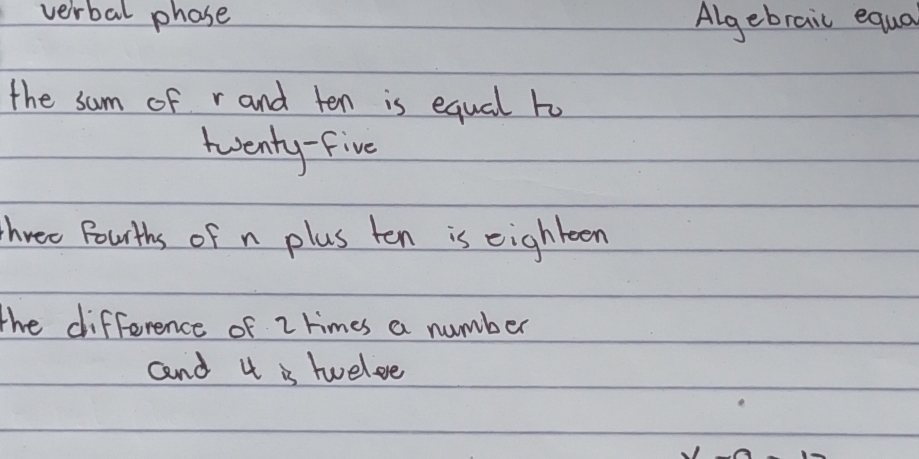 verbal phase Algebraic equa
the sum of r and ten is equal to
twenty-five
three fourths of n plus ten is eighteen
the difference of 2 times a number
and 4 is twelve